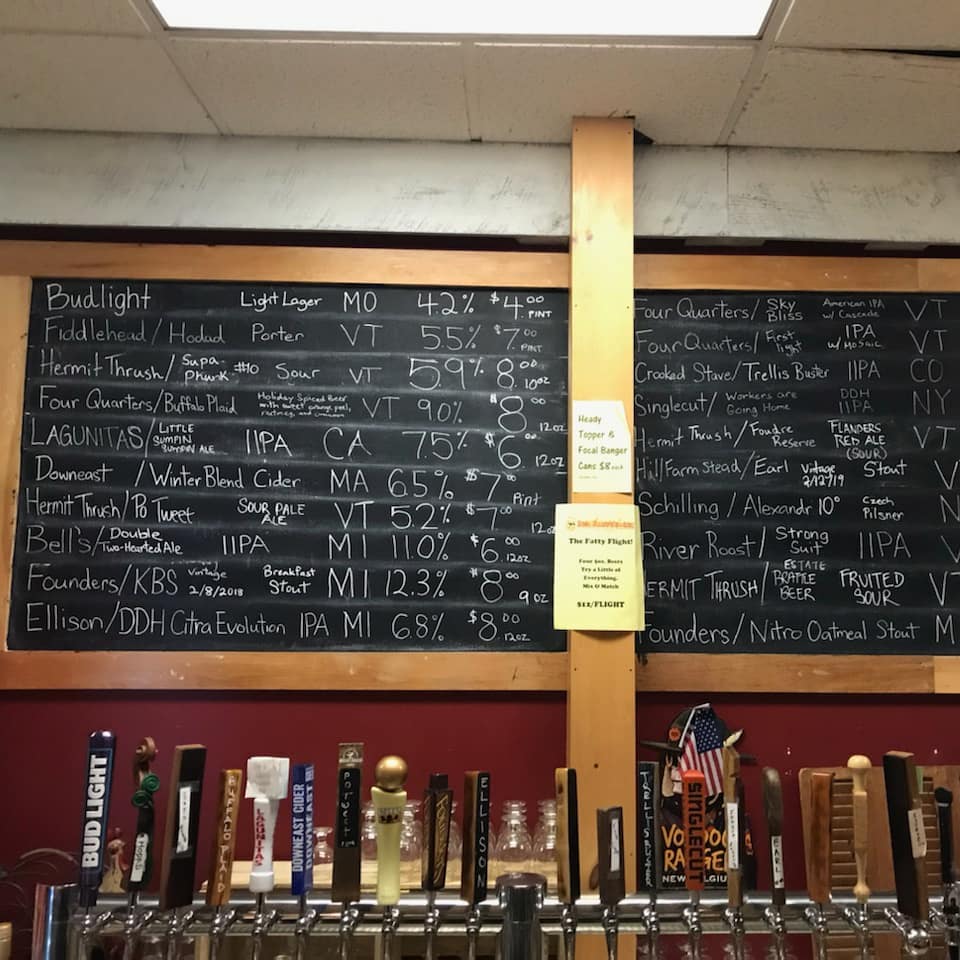 Budlight Light Lager MO 4.2% $4.00 PINT
Fiddlehead/Hodad Porter VT 5.5% $7.00 PINT
Hermit Thrush/Supa-Phunk #10 Sour VT 5.9% 8.00 10oz
Four Quarters/Buffalo Plaid Holiday Spiced Beer with sweet orange peel, nutmeg, and cinnamon VT 9.0% 8.00 12oz
LAGUNITAS/LITTLE SUMPIN SUMPIN ALE IIPA CA 7.5% $6.00 12oz
Downeast /Winter Blend Cider MA 6.5% $7.00 Pint
Hermit Thrush/Po Tweet SOUR PALE ALE VT 5.2% $7.00 12oz
Bell's/Double Two-Hearted Ale IIPA MI 11.0% $6.00 12oz
Founders/KBS Vintage 2/8/2018 Breakfast Stout MI 12.3% $8.00 9oz
Ellison/DDH Citra Evolution IPA MI 6.8% $8.00 12oz
Heady
Topper &
Focal Banger
Cans $8 each
The Fatty Flight!
Four 5oz. Beers
Try a Little of
Everything.
Mix & Match
$12/FLIGHT
Four Quarters/Sky Bliss American IPA w/ Cascade VT
Four Quarters/First light IPA w/ Mosaic VT
Crooked Stave/Trellis Buster IIPA CO
Singlecut/Workers are Going Home DDH IIPA NY
Hermit Thrush/Foudre Reserve FLANDERS RED ALE (SOUR) VT
Hill Farmstead/Earl Vintage 2/12/19 Stout V
Schilling/Alexandr 10° Czech Pilsner N
River Roost/Strong Suit IIPA V
HERMIT THRUSH/ESTATE BRATTLE BEER FRUITED SOUR V
Founders/Nitro Oatmeal Stout M
BUD LIGHT
BUFFALO PLAID
LAGUNITAS
DOWNEAST CIDER
DOWNEAST
PO TWEET
ELLISON
TRELLIS BUSTER
SINGLECUT
VOODOO
RANGER
NEW BELGIUM
EARL